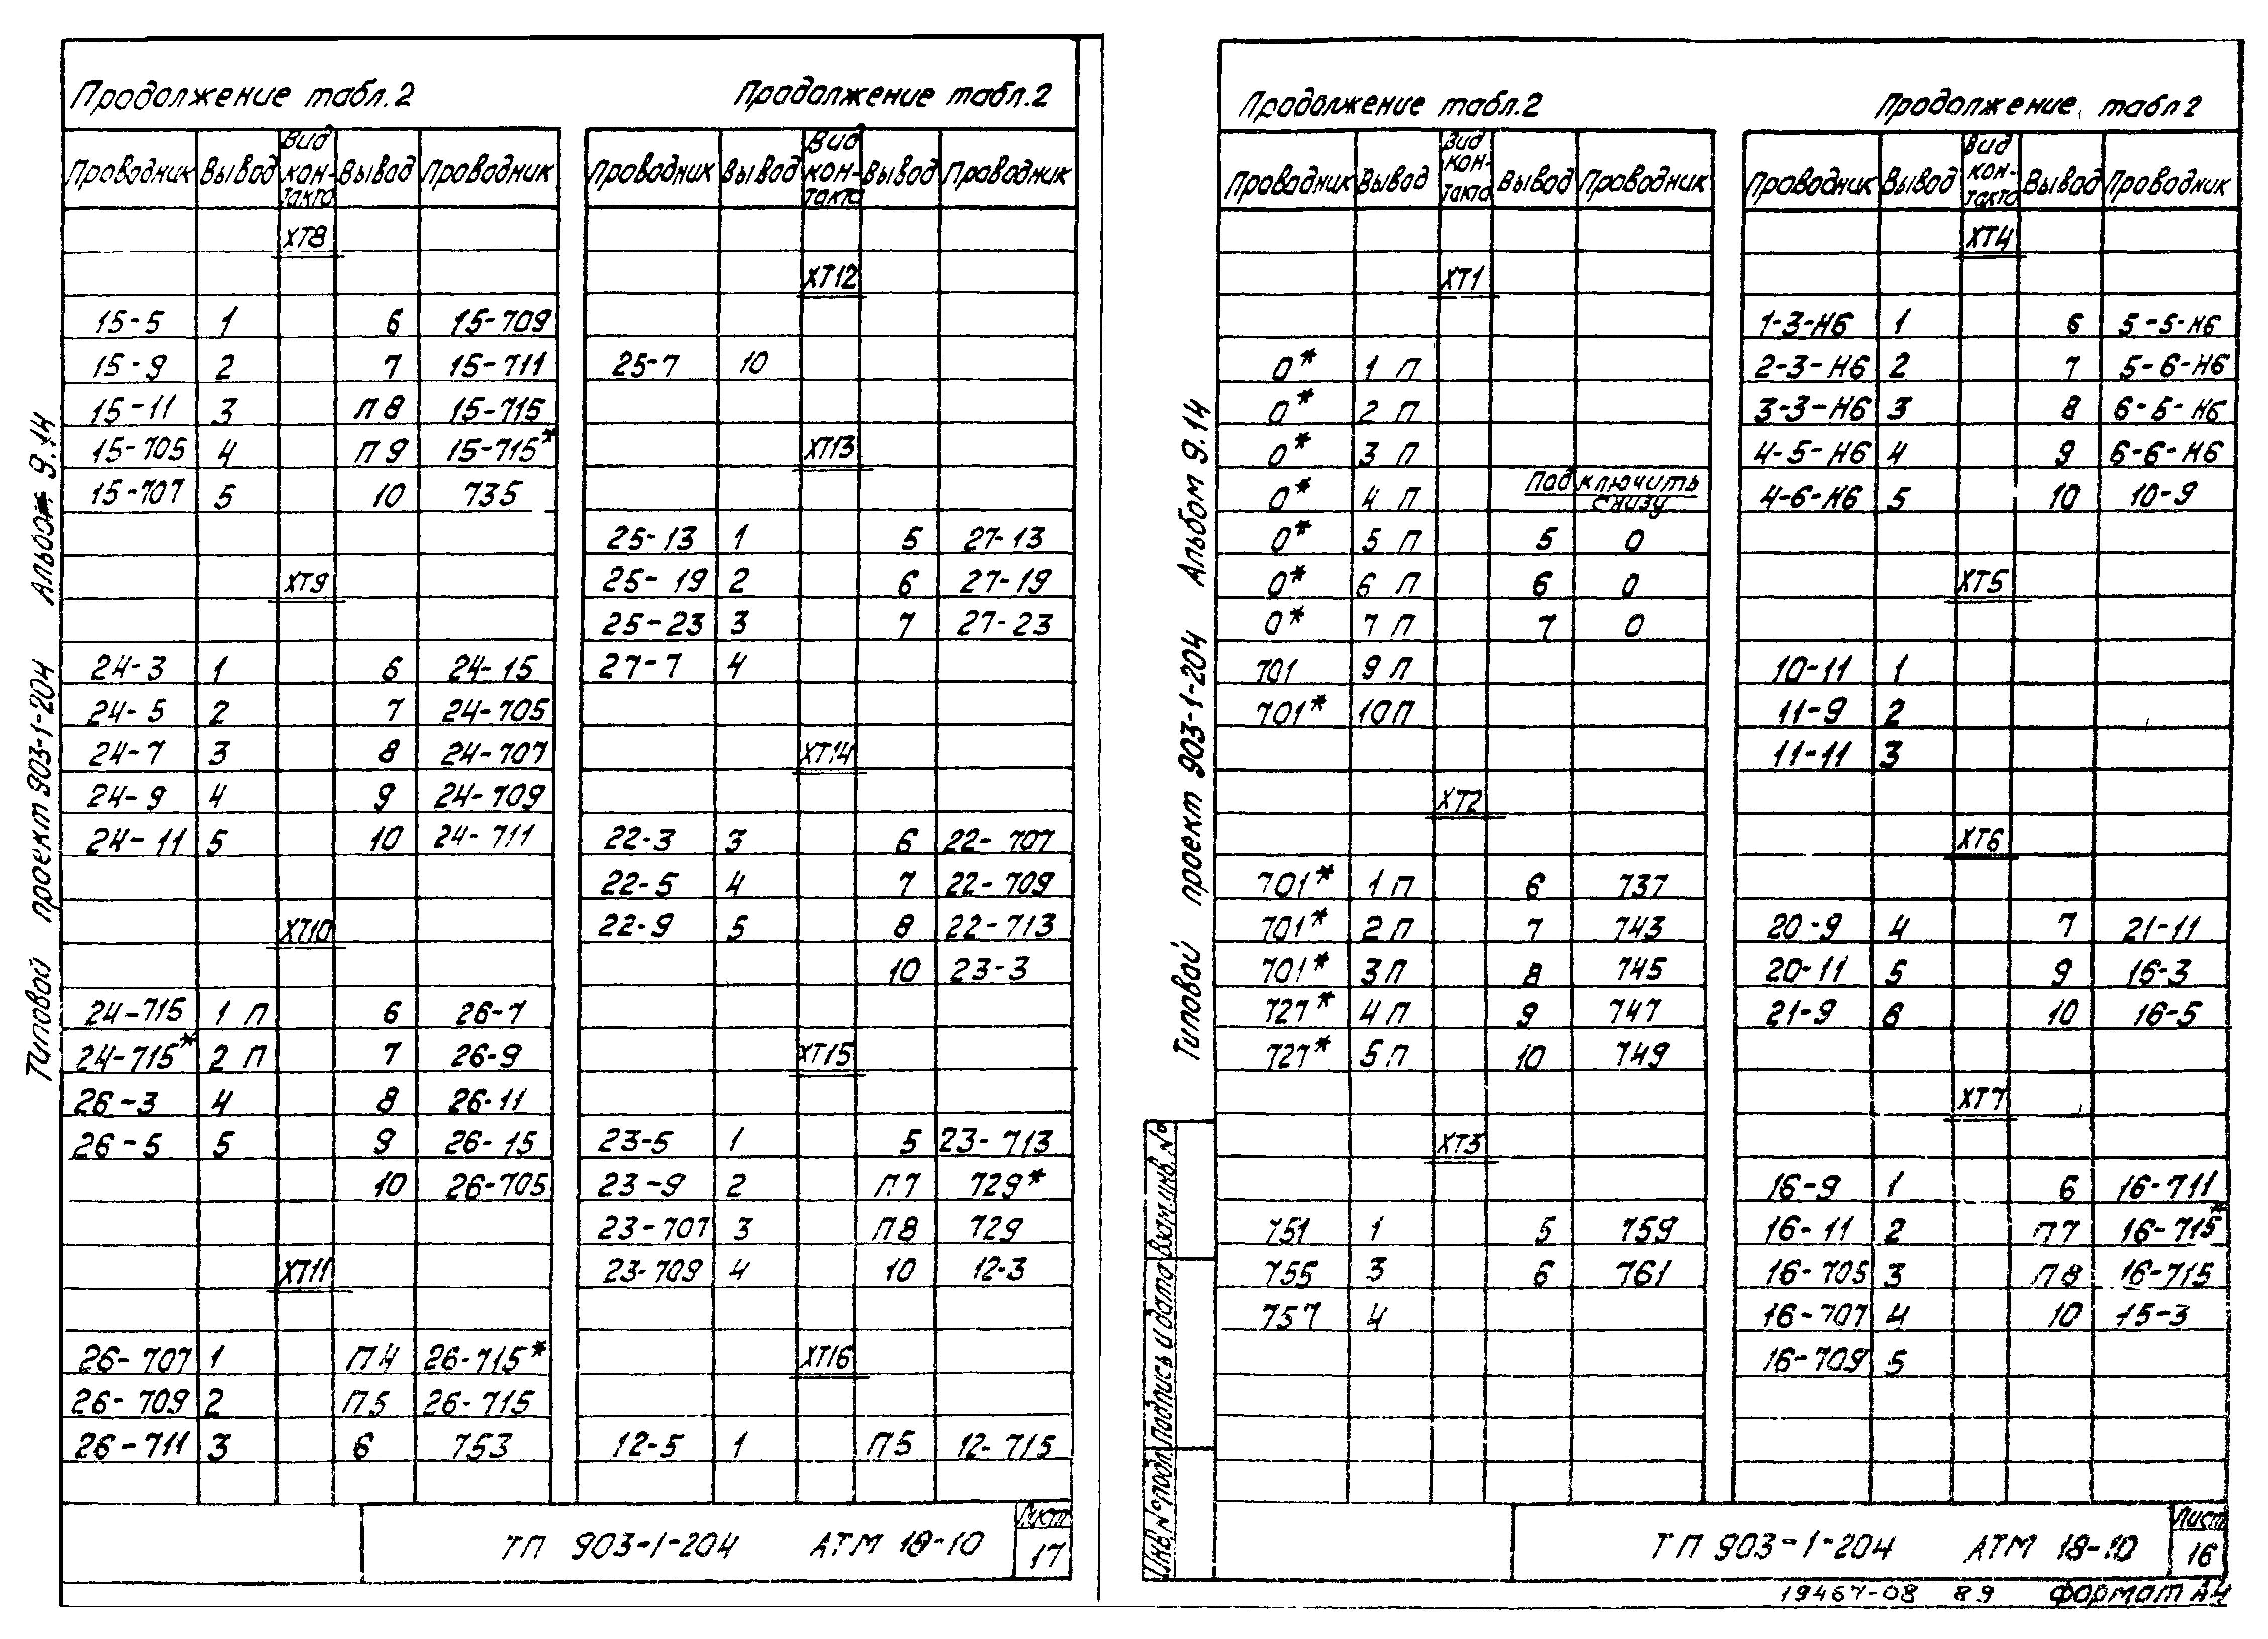 Продолжение табл.2
Проводник Вывод Вид кон-такта Вывод Проводник
ХТ8
15-5 1 6 15-709
15-9 2 7 15-711
15-11 3 П 8 15-715
15-705 4 П 9 15-715*
15-707 5 10 735
ХТ9
24-3 1 6 24-15
24-5 2 7 24-705
24-7 3 8 24-707
24-9 4 9 24-709
24-11 5 10 24-711
ХТ10
24-715 1 П 6 26-7
24-715* 2 П 7 26-9
26-3 4 8 26-11
26-5 5 9 26-15
10 26-705
ХТ11
26-707 1 П4 26-715*
26-709 2 П5 26-715
26-711 3 6 753
Продолжение табл.2
Проводник Вывод Вид кон-такта Вывод Проводник
ХТ12
25-7 10
ХТ13
25-13 1 5 27-13
25-19 2 6 27-19
25-23 3 7 27-23
27-7 4
ХТ14
22-3 3 6 22-707
22-5 4 7 22-709
22-9 5 8 22-713
10 23-3
ХТ15
23-5 1 5 23-713
23-9 2 П7 729*
23-707 3 П8 729
23-709 4 10 12-3
ХТ16
12-5 1 П5 12-715
Типовой проект 903-1-204 Альбом 9.14
ТП 903-1-204 АТМ 18-10
Лист
17
Продолжение табл.2
Проводник Вывод Вид кон-такта Вывод Проводник
ХТ1
0* 1 П
0* 2 П
0* 3 П
0* 4 П Подключить снизу
0* 5 П 5 0
0* 6 П 6 0
0* 7 П 7 0
701 9 П
701* 10 П
ХТ2
701* 1 П 6 737
701* 2 П 7 743
701* 3 П 8 745
727* 4 П 9 747
727* 5 П 10 749
ХТ3
751 1 5 759
755 3 6 761
757 4
Продолжение табл 2
Проводник Вывод Вид кон-такта Вывод Проводник
ХТ4
1-3-Н6 1 6 5-5-Н6
2-3-Н6 2 7 5-6-Н6
3-3-Н6 3 8 6-5-Н6
4-5-Н6 4 9 6-6-Н6
4-6-Н6 5 10 10-9
ХТ5
10-11 1
11-9 2
11-11 3
ХТ6
20-9 4 7 21-11
20-11 5 9 16-3
21-9 6 10 16-5
ХТ7
16-9 1 6 16-711
16-11 2 П7 16-715*
16-705 3 П8 16-715
16-707 4 10 15-3
16-709 5
Типовой проект 903-1-204 Альбом 9.14
Инв.№подл Подпись и дата Взам.инв.№
ТП 903-1-204 АТМ 18-10
Лист
16
19467-08 89 Формат А4